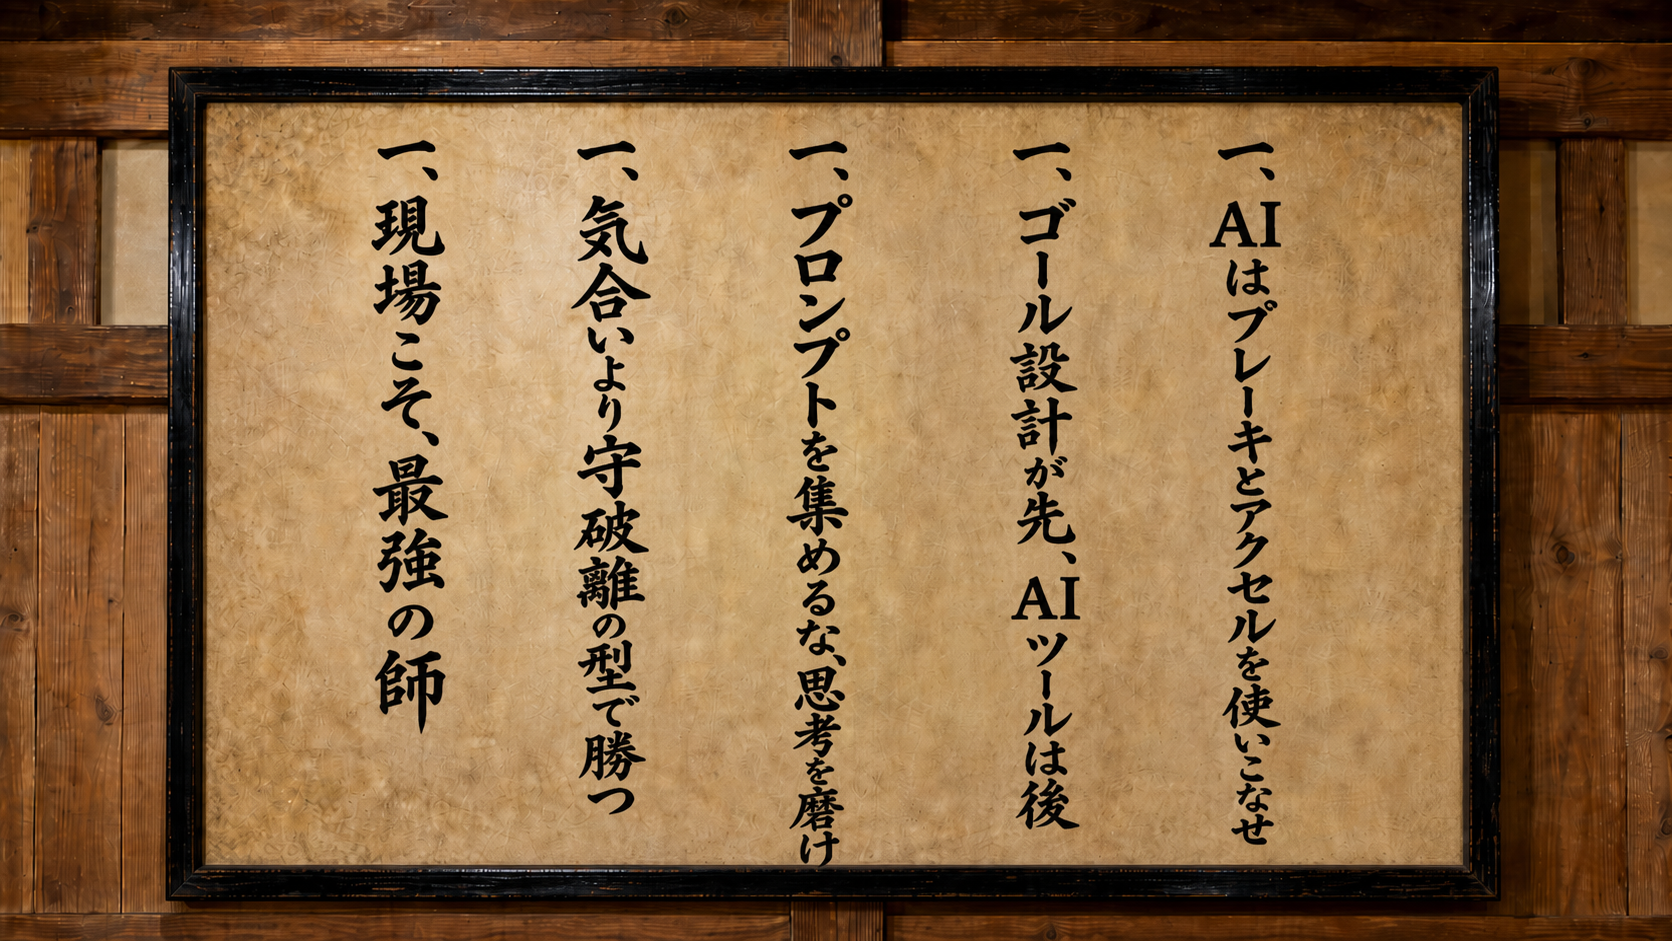 一、AIはブレーキとアクセルを使いこなせ
一、ゴール設計が先、AIツールは後
一、プロンプトを集めるな、思考を磨け
一、気合いより守破離の型で勝つ
一、現場こそ、最強の師